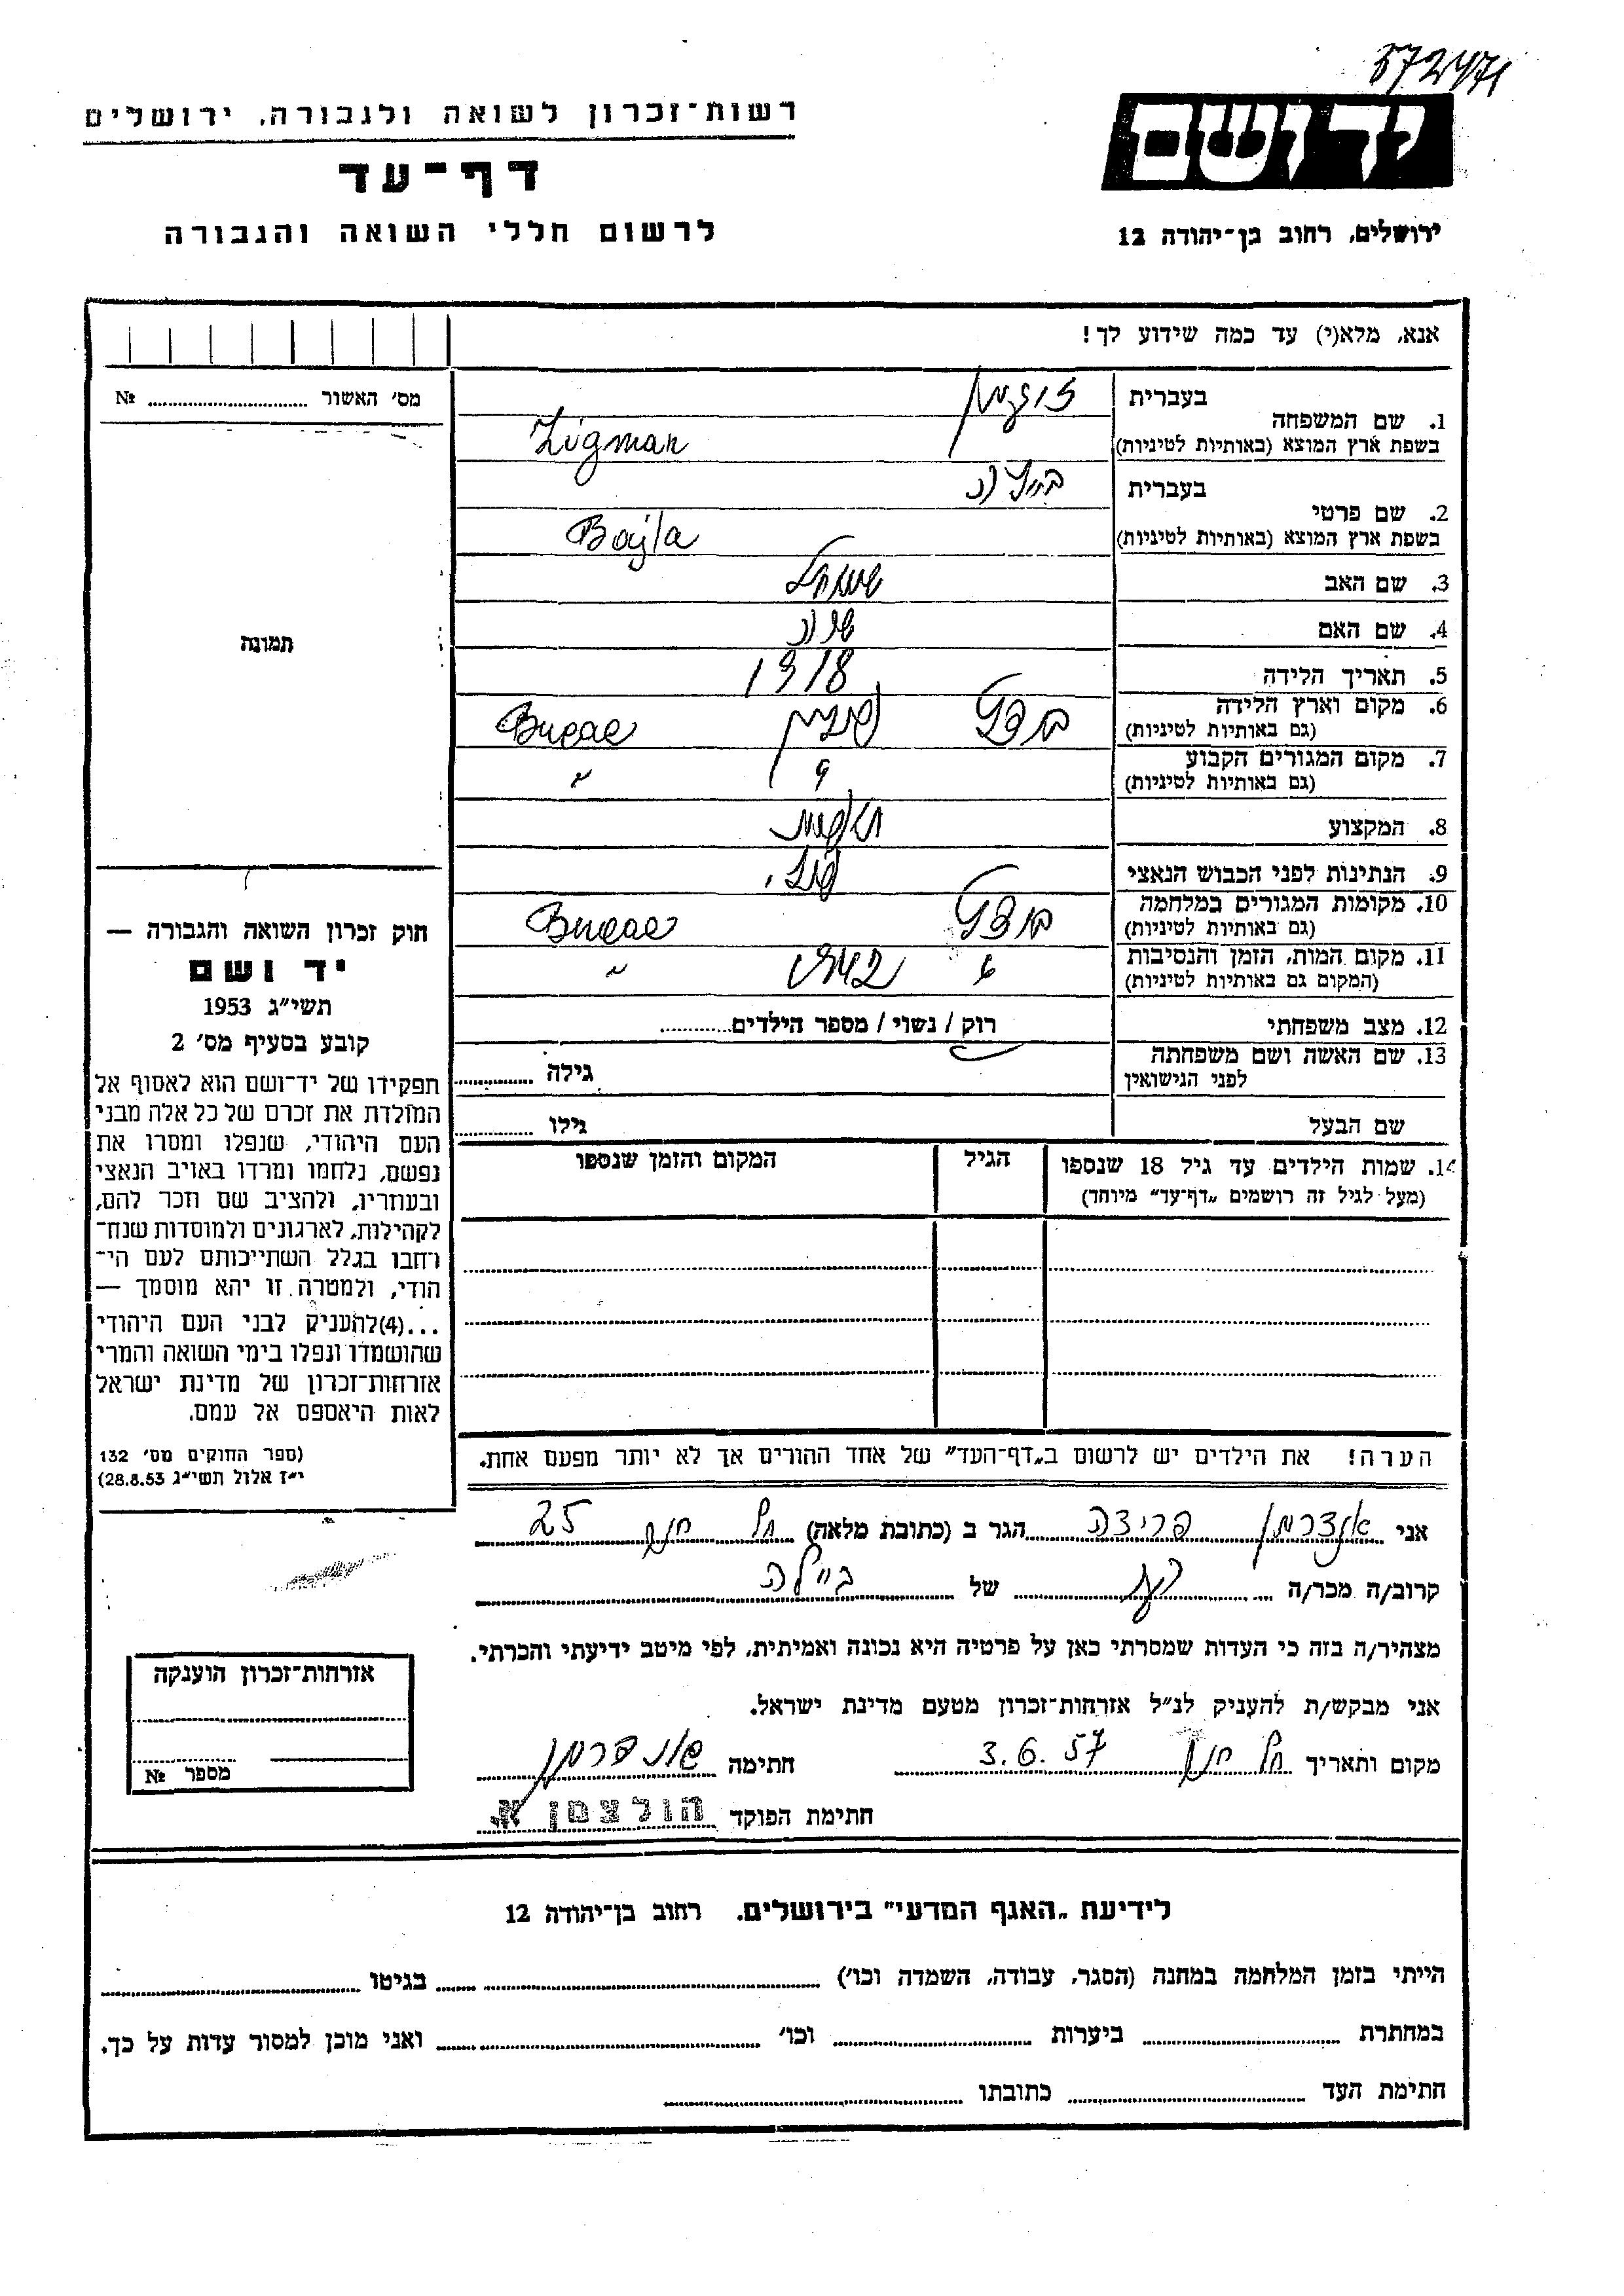 572471
רשות־זכרון לשואה ולגבורה, ירושלים
ידושם
דף־עד
ירושלים, רחוב בן־יהודה 12
לרשום חללי השואה והגבורה
אנא, מלא(י) עד כמה שידוע לך!
מס׳ האשור ........ №
1. שם המשפחה
בעברית
בשפת ארץ המוצא (באותיות לטיניות) Zigman
2. שם פרטי
בעברית
בשפת ארץ המוצא (באותיות לטיניות) Bajla
3. שם האב שמואל
4. שם האם שרה
5. תאריך הלידה 1918
6. מקום וארץ הלידה
(גם באותיות לטיניות)
7. מקום המגורים הקבוע
(גם באותיות לטיניות) "
8. המקצוע
9. הנתינות לפני הכבוש הנאצי
10. מקומות המגורים במלחמה
(גם באותיות לטיניות)
11. מקום המות, הזמן והנסיבות
(המקום גם באותיות לטיניות) "
12. מצב משפחתי רוק / נשוי / מספר הילדים........
13. שם האשה ושם משפחתה
לפני הנישואין גילה ........
שם הבעל גילו ........
14. שמות הילדים עד גיל 18 שנספו
(מעל לגיל זה רושמים „דף־עד” מיוחד)
הגיל
המקום והזמן שנספו
הערה! את הילדים יש לרשום ב„דף־העד” של אחד ההורים אך לא יותר מפעם אחת.
תמונה
חוק זכרון השואה והגבורה —
יד ושם
תשי״ג 1953
קובע בסעיף מס׳ 2
תפקידו של יד־ושם הוא לאסוף אל
המולדת את זכרם של כל אלה מבני
העם היהודי, שנפלו ומסרו את
נפשם, נלחמו ומרדו באויב הנאצי
ובעוזריו, ולהציב שם וזכר להם,
לקהילות, לארגונים ולמוסדות שנח־
רבו בגלל השתייכותם לעם הי־
הודי, ולמטרה זו יהא מוסמך —
...(4)להעניק לבני העם היהודי
שהושמדו ונפלו בימי השואה והמרי
אזרחות־זכרון של מדינת ישראל
לאות היאספם אל עמם.
(ספר החוקים מס׳ 132
י״ז אלול תשי״ג 28.8.53)
אני פרידה הגר ב (כתובת מלאה) 25
קרוב/ה מכר/ה של ביילה
מצהיר/ה בזה כי העדות שמסרתי כאן על פרטיה היא נכונה ואמיתית, לפי מיטב ידיעתי והכרתי.
אני מבקש/ת להעניק לנ״ל אזרחות־זכרון מטעם מדינת ישראל.
מקום ותאריך 3.6.57 חתימה
חתימת הפוקד הולצמן א.
אזרחות־זכרון הוענקה
מספר №
לידיעת „האגף המדעי” בירושלים. רחוב בן־יהודה 12
הייתי בזמן המלחמה במחנה (הסגר, עבודה, השמדה וכו׳) ........ בגיטו ........
במחתרת ........ ביערות ........ וכו׳ ........ ואני מוכן למסור עדות על כך.
חתימת העד ........ כתובתו ........